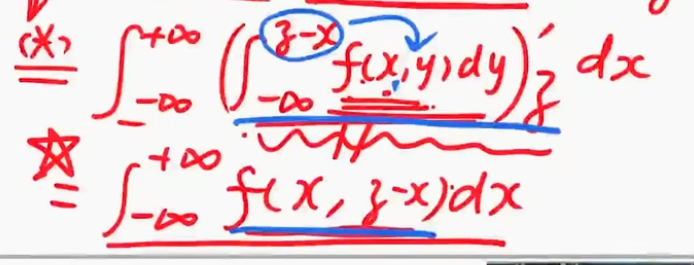 (*) ∫_{-∞}^{+∞} (∫_{-∞}^{z-x} f(x,y)dy)'_z dx
☆ = ∫_{-∞}^{+∞} f(x, z-x)dx